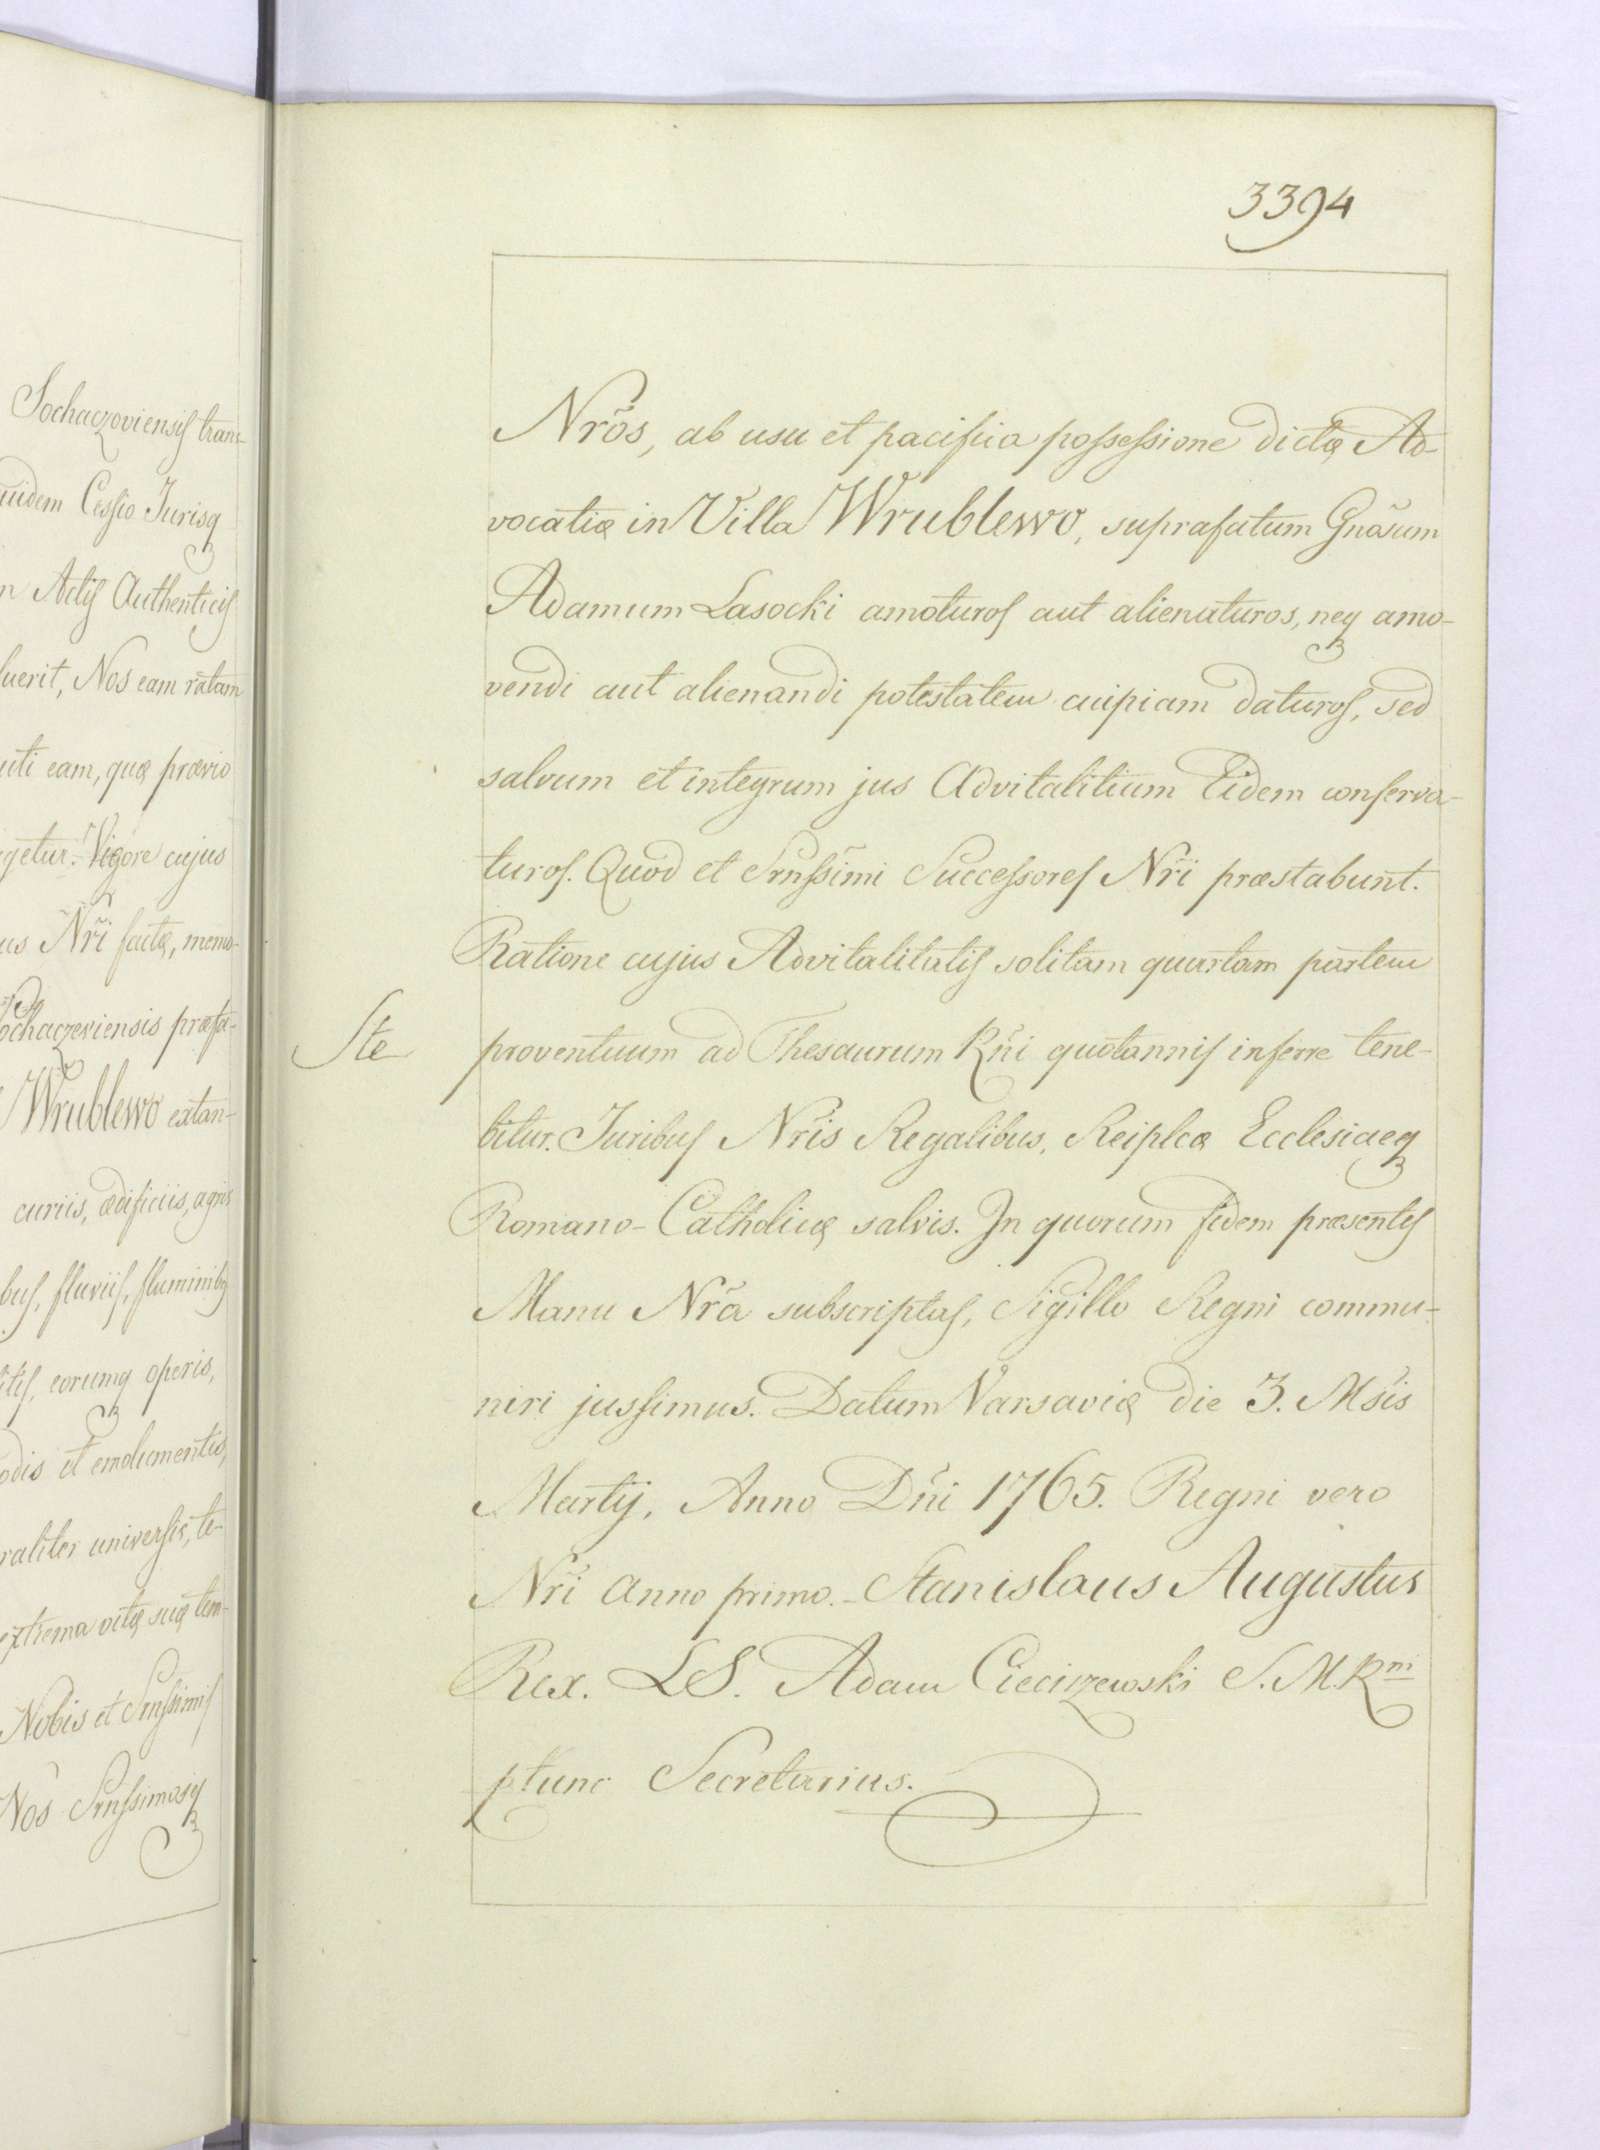 Sochaczoviensis trans-
uidem Cessio Jurisq
n Actis Authenticis
fuerit, Nos eam ratam
uti eam, quæ prævio
getur. Vigore cujus
us Nr̃i factæ, memo-
ochaczeviensis præfa-
Wrublewo extan-
curiis, ædificiis, agris
bus, fluviis, fluminibq
itis, eorumq operis,
odis et emolumentis,
raliter universis, te-
extrema vitæ suæ tem-
Nobis et Srnssimis
Nos Srnssimosq
3394
Nr̃os, ab usu et pacifica possessione dictæ Ad-
vocatiæ in Villa Wrublewo, suprafatum Gnõsum
Adamum Lasocki amoturos aut alienaturos, neq amo-
vendi aut alienandi potestatem cuipiam daturos, sed
salvum et integrum jus Advitalitium Eidem conserva-
turos. Quod et Srñssimi Successores Nr̃i præstabunt.
Ratione cujus Advitalitatis solitam quartam partem
Ste
proventuum ad Thesaurum Rñi quotannis inferre tene-
bitur. Juribus Nr̃is Regalibus, Reiplcæ Ecclesiaeq
Romano-Catholicæ salvis. In quorum fidem præsentes
Manu Nr̃a subscriptas, Sigillo Regni commu-
niri jussimus. Datum Varsaviæ die 3. Msis
Martij, Anno Dñi 1765. Regni vero
Nr̃i Anno primo. - Stanislaus Augustus
Rex. LS. Adam Cieciszewski S. M. Rni
ptunc Secretarius.